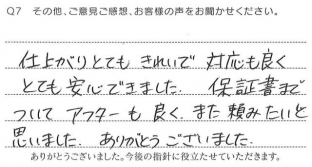 Q7 その他、ご意見ご感想、お客様の声をお聞かせください。
仕上がりとてもきれいで 対応も良く
とても安心できました. 保証書まで
ついて アフターも良く. また頼みたいと
思いました. ありがとうございました.
ありがとうございました。今後の指針に役立たせていただきます。